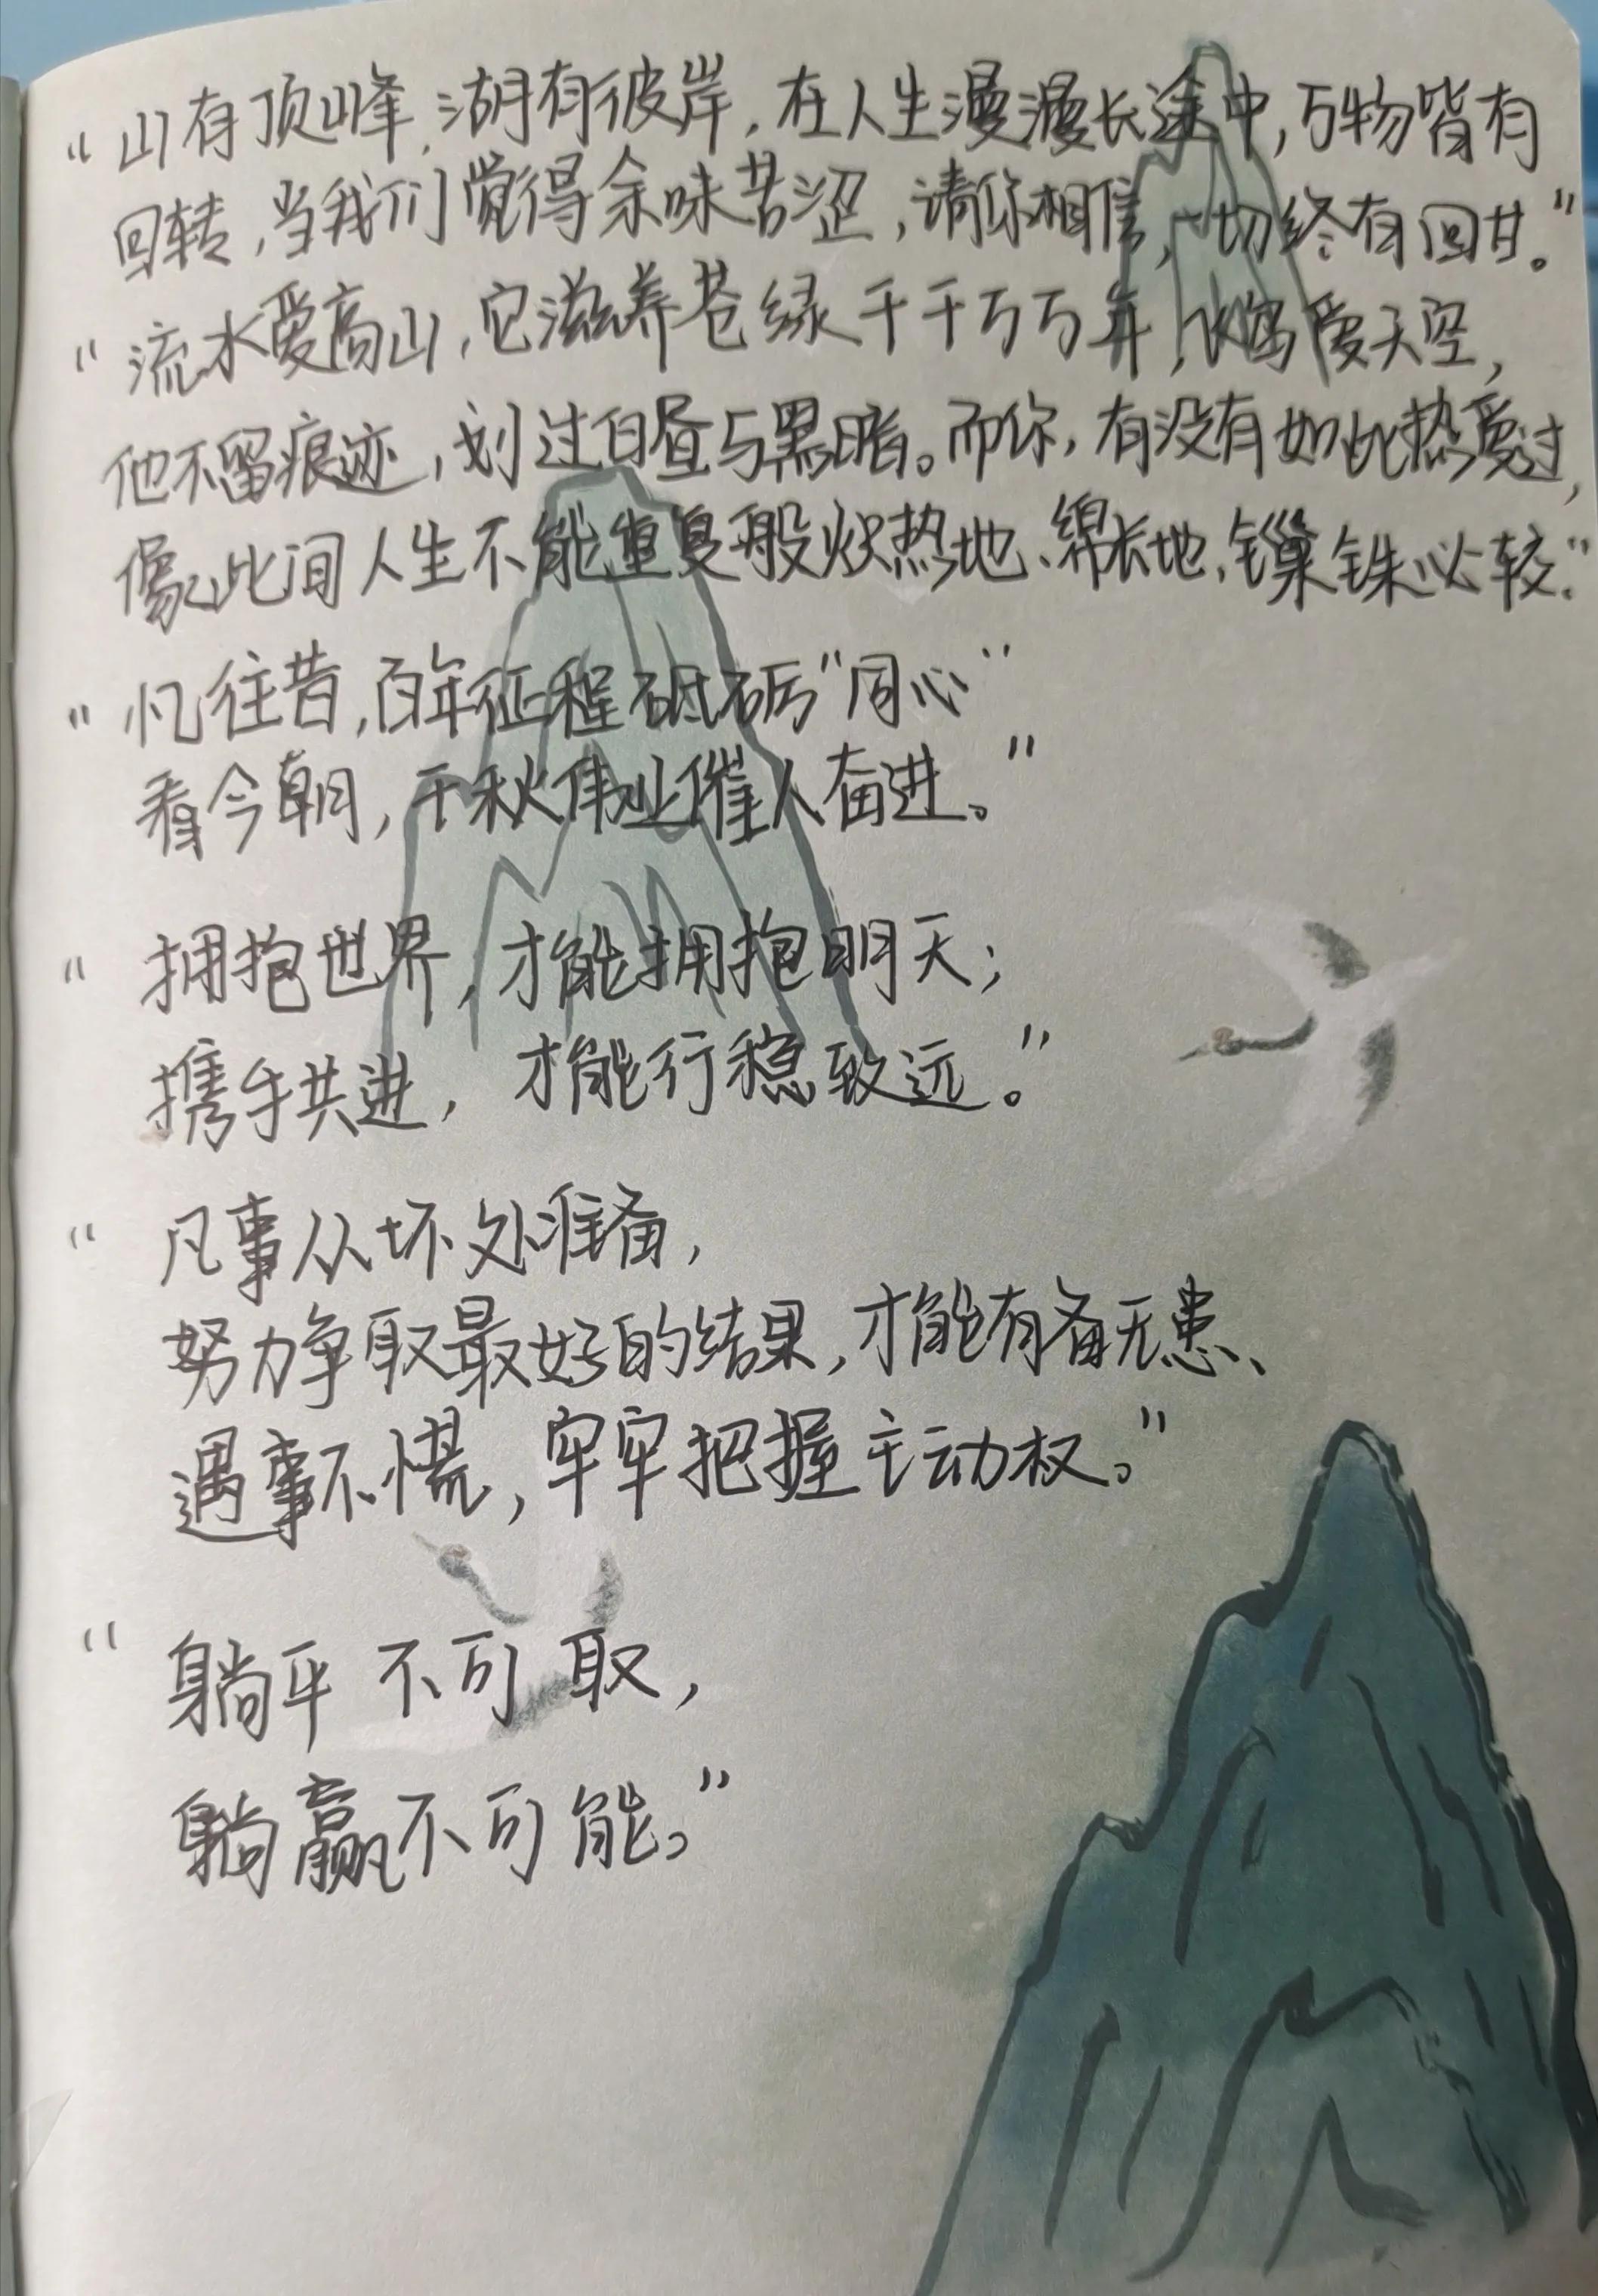 “山有顶峰,湖有彼岸,在人生漫漫长途中,万物皆有
回转,当我们觉得余味苦涩,请你相信,一切终有回甘。”
“流水爱高山,它滋养苍绿千千万万年,飞鸟爱天空,
他不留痕迹,划过白昼与黑暗。而你,有没有如此热爱过,
像此间人生不能重复般炽热地、绵长地、锱铢必较.”
“忆往昔,百年征程砥砺“同心”
看今朝,千秋伟业催人奋进。”
“拥抱世界,才能拥抱明天;
携手共进,才能行稳致远。”
“凡事从坏处准备,
努力争取最好的结果,才能有备无患、
遇事不慌,牢牢把握主动权。”
“躺平不可取,
躺赢不可能。”